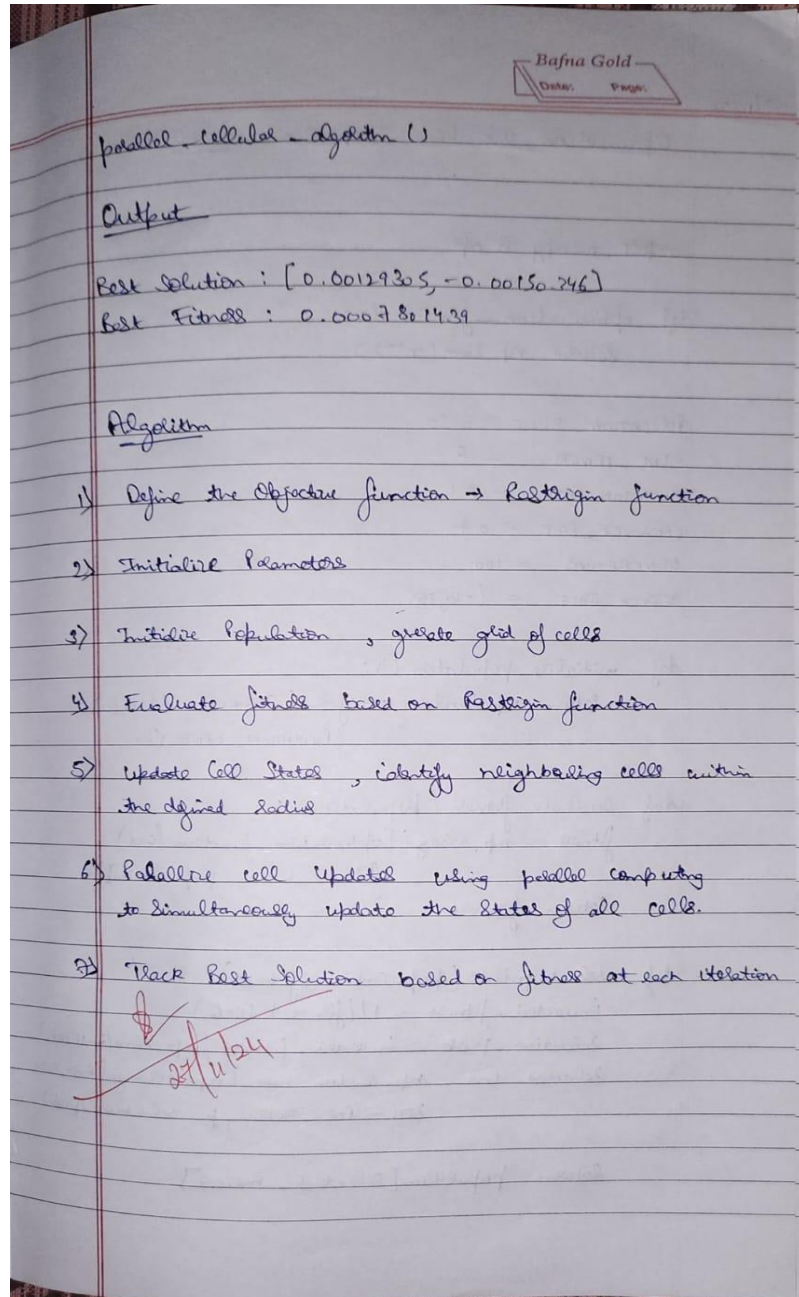 Bafna Gold
Date: Page:
parallel_cellular_algorithm ()
Output
Best Solution : [0.00129305, -0.00150246]
Best Fitness : 0.0007801439
Algorithm
1) Define the Objective function → Rastrigin function
2) Initialize Parameters
3) Initialize Population , grid of cells
4) Evaluate fitness based on Rastrigin function
5) Update Cell States , identify neighbouring cells within
the defined radius
6) Parallize cell updates using parallel computing
to simultaneously update the states of all cells.
7) Track Best Solution based on fitness at each iteration
27/11/24